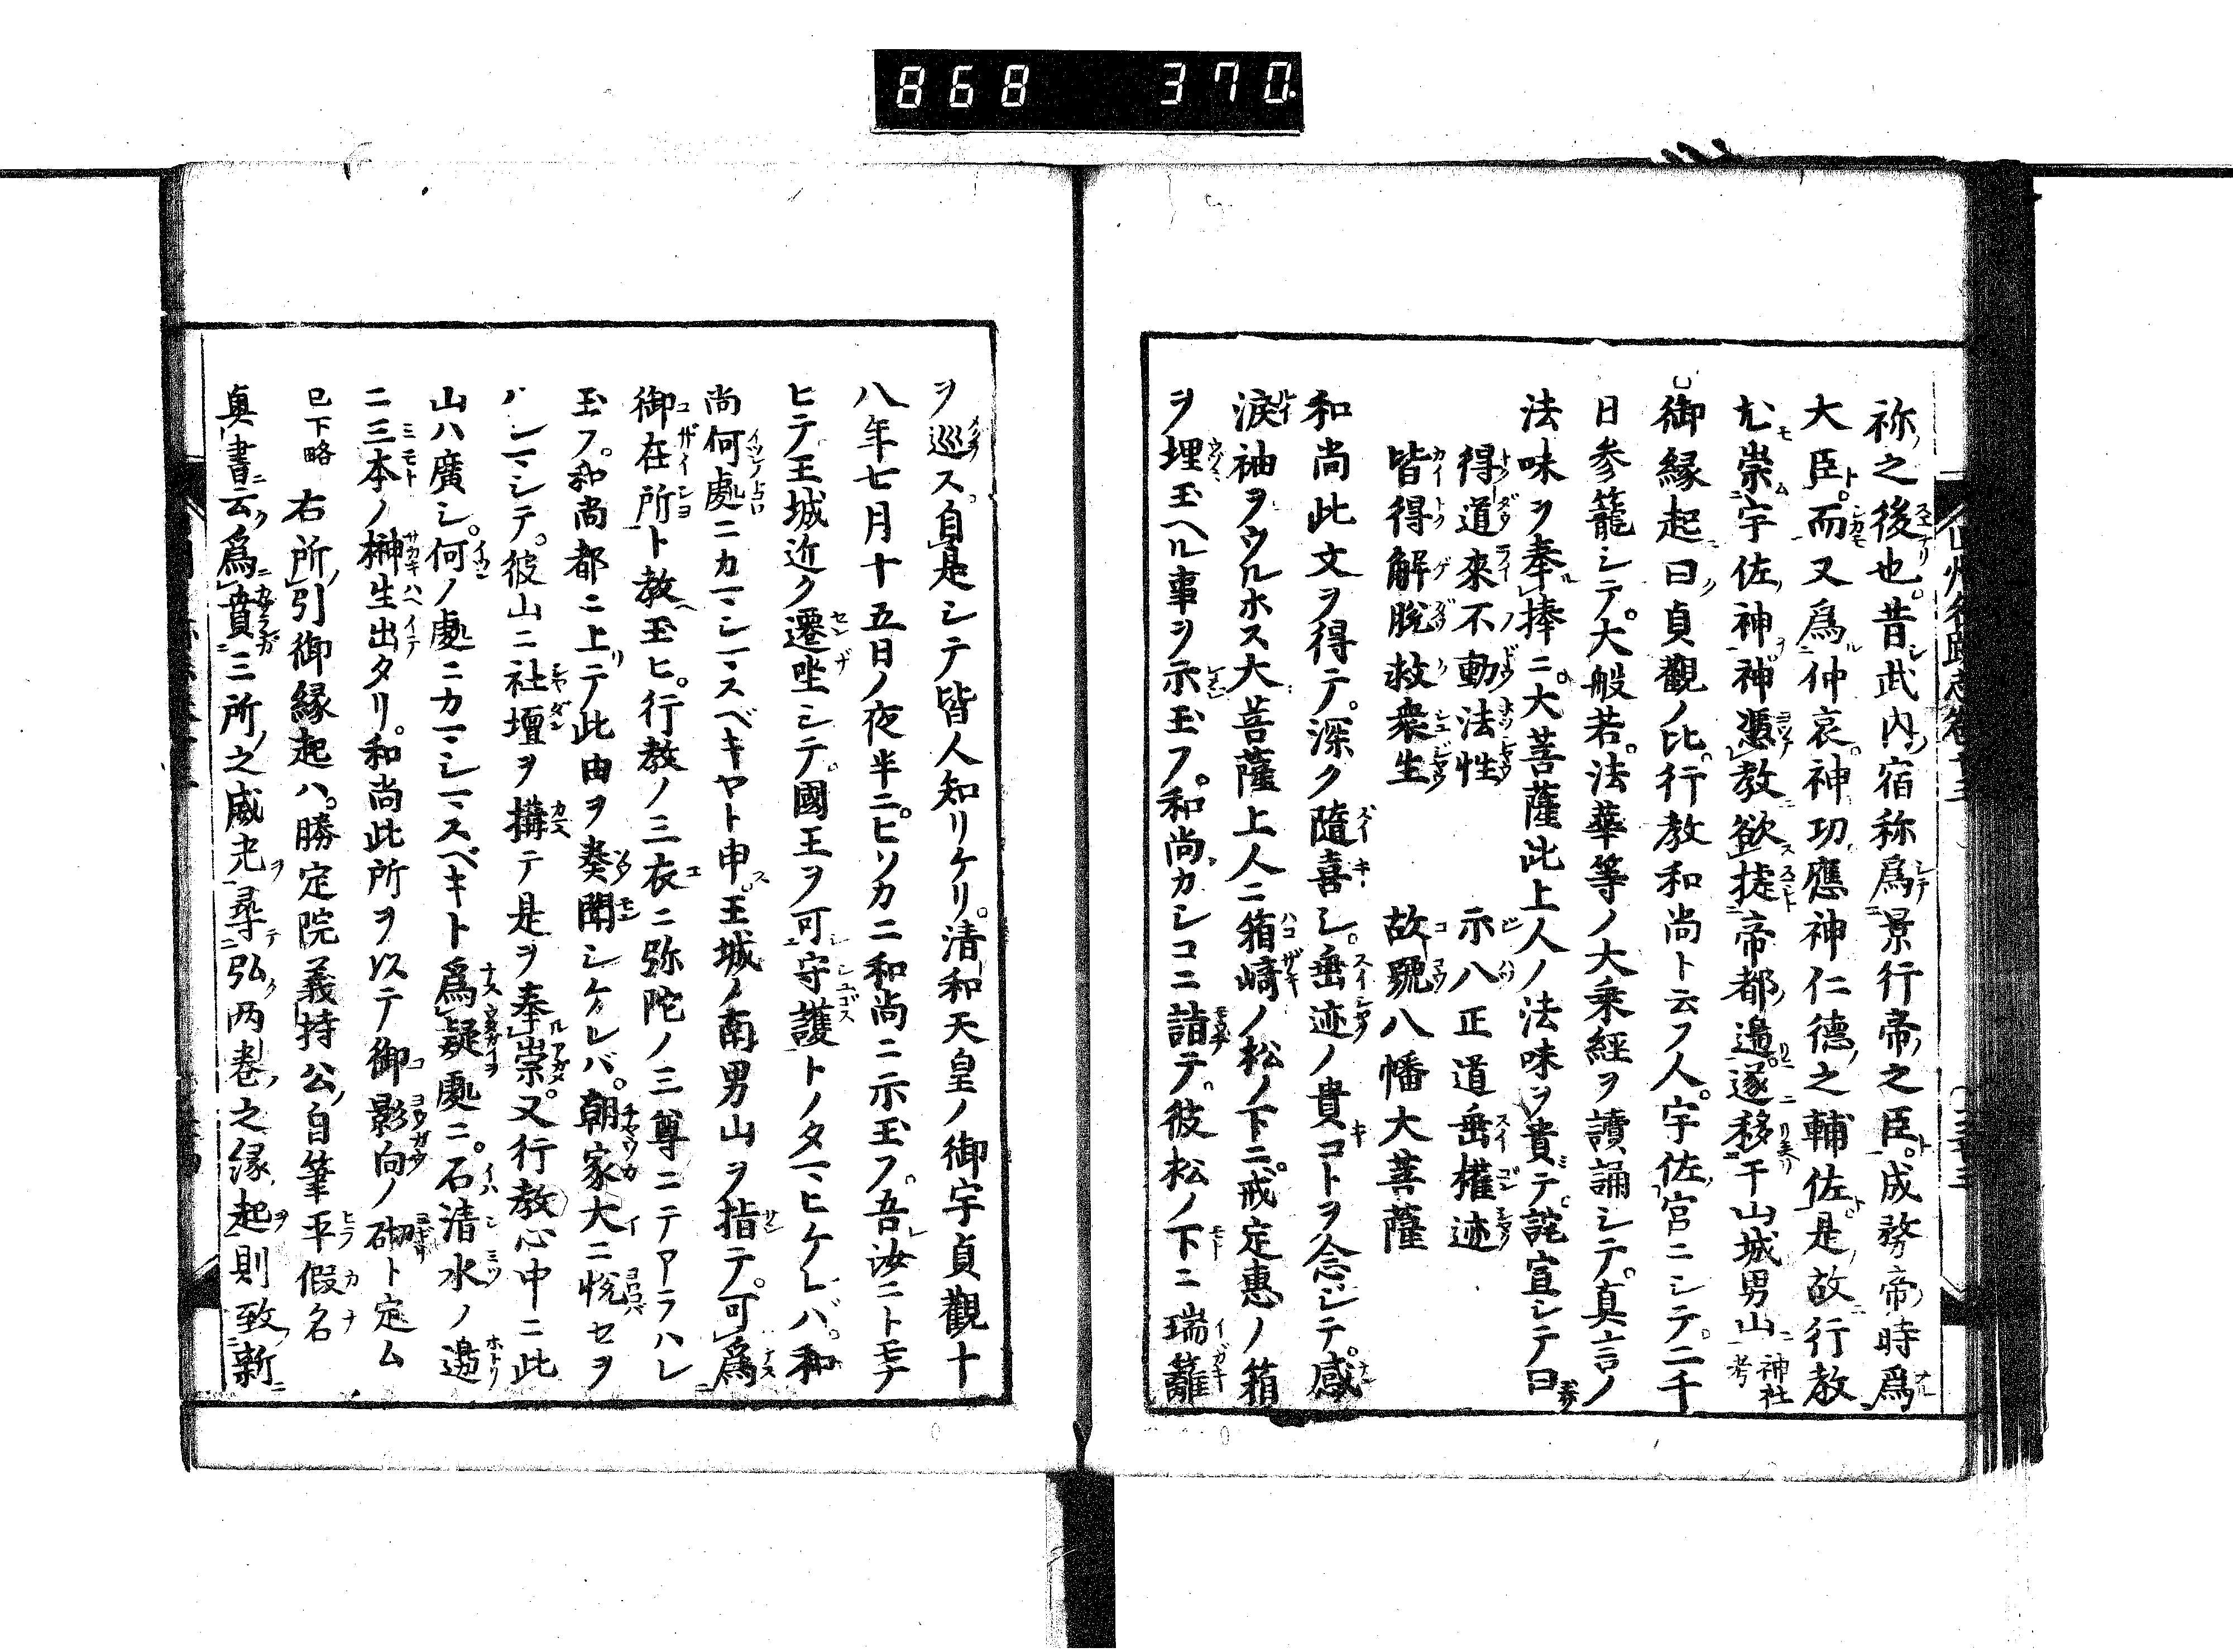 868 370
祢之後也。昔武内宿祢爲景行帝之臣。成務帝時爲
大臣。而又爲仲哀。神功應神仁德之輔佐。是故行教
尤崇宇佐神神憑教欲捷帝都邉。遂移于山城男山神社考
御縁起曰貞觀ノ比。行教和尚ト云フ人。宇佐宮ニシテ。二千
日参籠シテ。大般若。法華等ノ大乘經ヲ讀誦シテ。真言ノ
法味ヲ奉捧ニ。大菩薩此上人ノ法味ヲ貴テ。詫宣シテ曰
得道來不動法性 示八正道垂權迹
皆得解脫救衆生 故號八幡大菩薩
和尚此文ヲ得テ。深ク隨喜シ。垂迹ノ貴コトヲ念シテ。感
涙袖ヲウルホス大菩薩上人ニ箱崎ノ松ノ下ニ。戒定惠ノ箱
ヲ埋玉ヘル事ヲ示玉フ。和尚カシコニ詣テ。彼松ノ下ニ瑞籬
ヲ巡ス。自是シテ皆人知リケリ。清和天皇ノ御宇貞觀十
八年七月十五日ノ夜半ニ。ヒソカニ和尚ニ示玉フ。吾汝ニトモナ
ヒテ王城近ク遷坐シテ。國王ヲ可守護トノタマヒケレバ。和
尚何處ニカマシマスベキヤト申。王城ノ南男山ヲ指テ。可爲
御在所ト教玉ヒ。行教ノ三衣ニ弥陀ノ三尊ニテアラハレ
玉フ。和尚都ニ上テ此由ヲ奏聞シケレバ。朝家大ニ悅セヲ
ハシマシテ。彼山ニ社壇ヲ搆テ是ヲ奉崇。又行教心中ニ此
山ハ廣シ。何ノ處ニカマシマスベキト爲疑處ニ。石清水ノ邉
ニ三本ノ榊生出タリ。和尚此所ヲ以テ御影向ノ砌ト定ム
已下略 右所引御縁起ハ。勝定院義持公自筆平假名
奥書云爲賁三所之威光尋弘两巻之縁起則致新